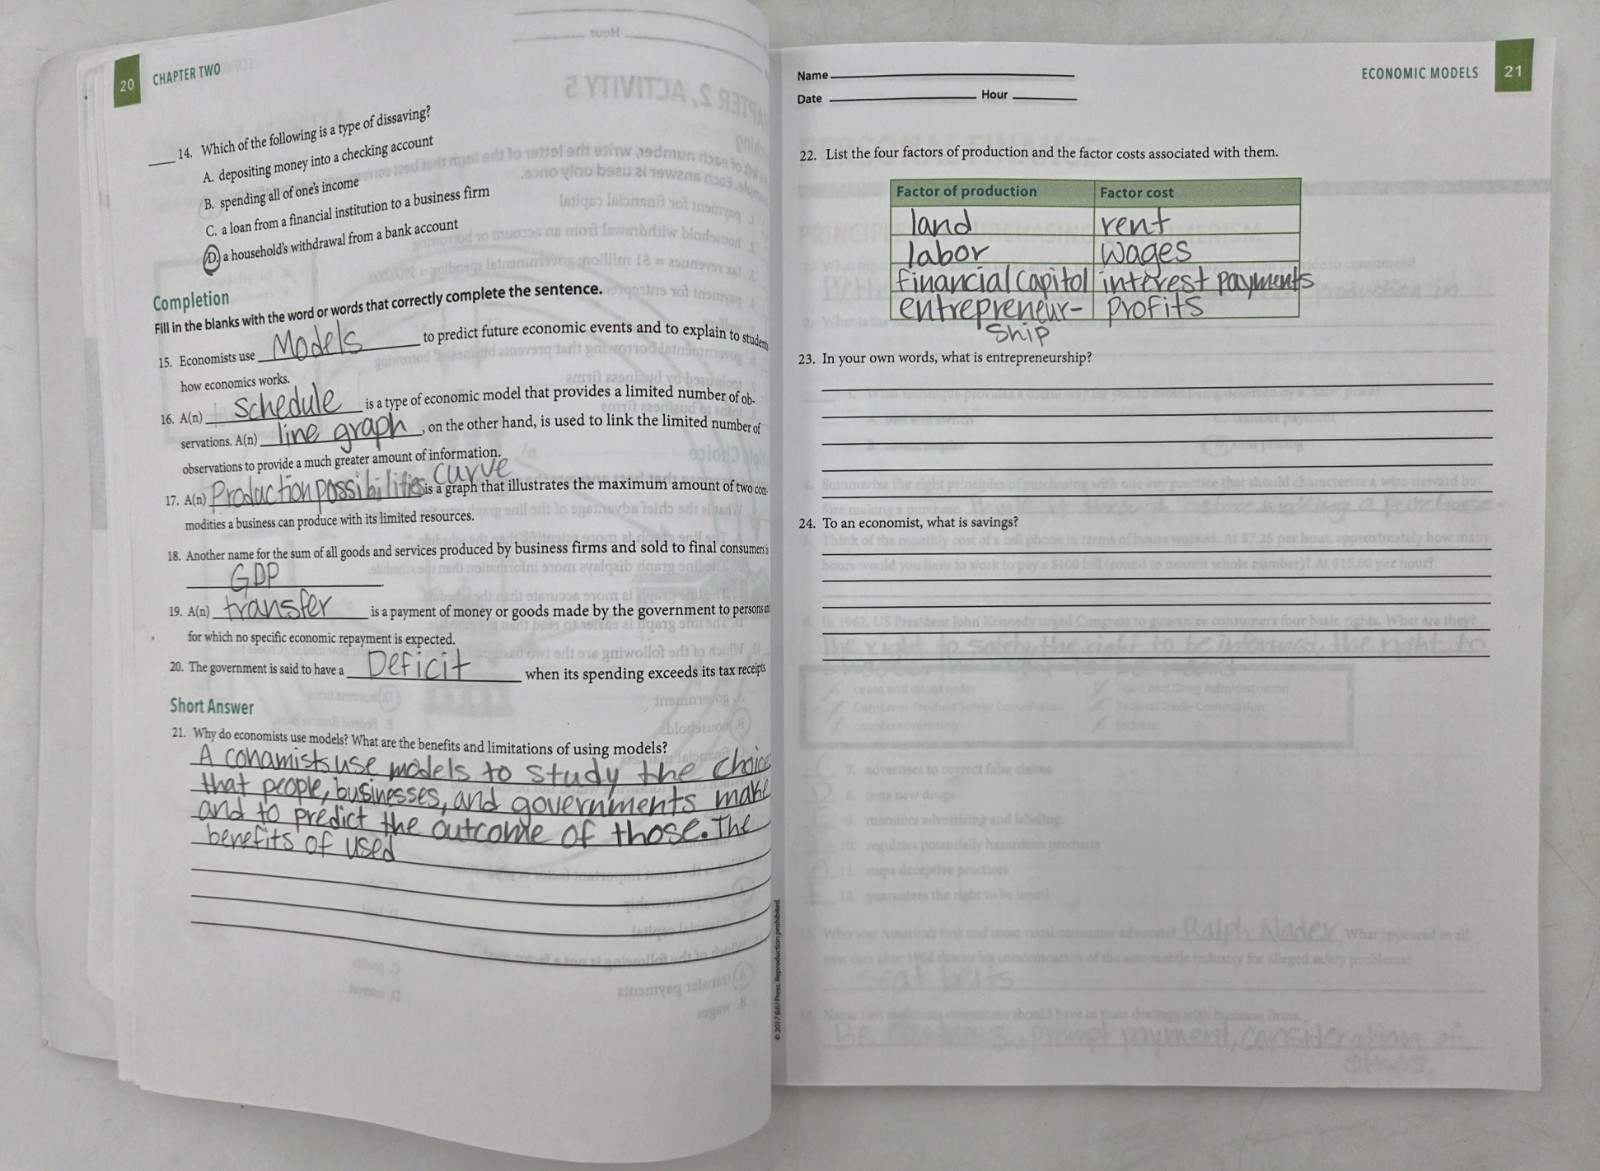 20 CHAPTER TWO
14. Which of the following is a type of dissaving?
A. depositing money into a checking account
B. spending all of one's income
C. a loan from a financial institution to a business firm
D. a household's withdrawal from a bank account
Completion
Fill in the blanks with the word or words that correctly complete the sentence.
15. Economists use Models to predict future economic events and to explain to students
how economics works.
16. A(n) schedule is a type of economic model that provides a limited number of ob-
servations. A(n) line graph, on the other hand, is used to link the limited number of
observations to provide a much greater amount of information.
17. A(n) Production possibilities curve is a graph that illustrates the maximum amount of two com-
modities a business can produce with its limited resources.
18. Another name for the sum of all goods and services produced by business firms and sold to final consumers is
GDP
19. A(n) transfer is a payment of money or goods made by the government to persons
for which no specific economic repayment is expected.
20. The government is said to have a Deficit when its spending exceeds its tax receipts
Short Answer
21. Why do economists use models? What are the benefits and limitations of using models?
A conamists use models to study the choic
that people, businesses, and governments make
and to predict the outcome of those. The
benefits of used
© 2017 BJU Press. Reproduction prohibited.
Name
ECONOMIC MODELS 21
Date Hour
22. List the four factors of production and the factor costs associated with them.
Factor of production Factor cost
land rent
labor wages
financial capitol interest payments
entrepreneur- profits
ship
23. In your own words, what is entrepreneurship?
24. To an economist, what is savings?